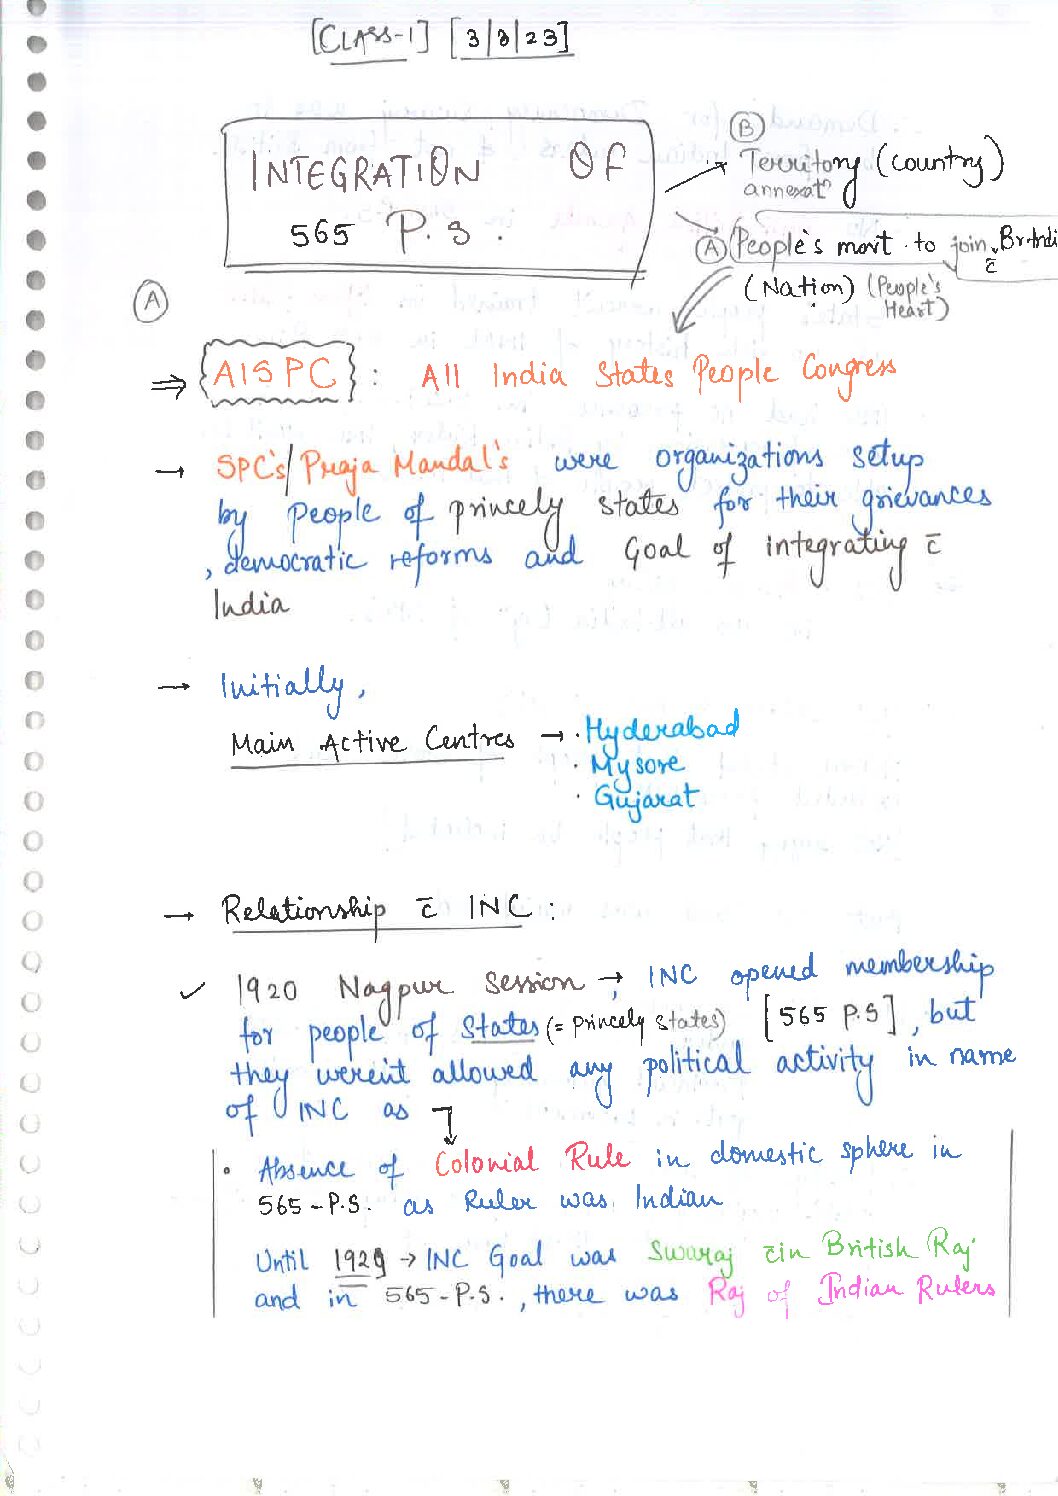 [CLASS-1] [3/8/23]
INTEGRATION OF
565 P.S.
(B)
Territory (country)
annexatn
(A) People's movt. to join Br. Indi
c̄
(Nation) (People's
Heart)
(A)
⇒ AISPC : All India States People Congress
→ SPC's/Praja Mandal's were organizations setup
by people of princely states for their grievances
, democratic reforms and Goal of integrating c̄
India
→ Initially,
Main Active Centres → · Hyderabad
· Mysore
· Gujarat
→ Relationship c̄ INC :
✓ 1920 Nagpur Session → INC opened membership
for people of States (= princely states) [565 P.S], but
they weren't allowed any political activity in name
of INC as
• Absence of Colonial Rule in domestic sphere in
565-P.S. as Ruler was Indian
Until 1929 → INC Goal was Swaraj c̄in British Raj
and in 565-P.S., there was Raj of Indian Rulers